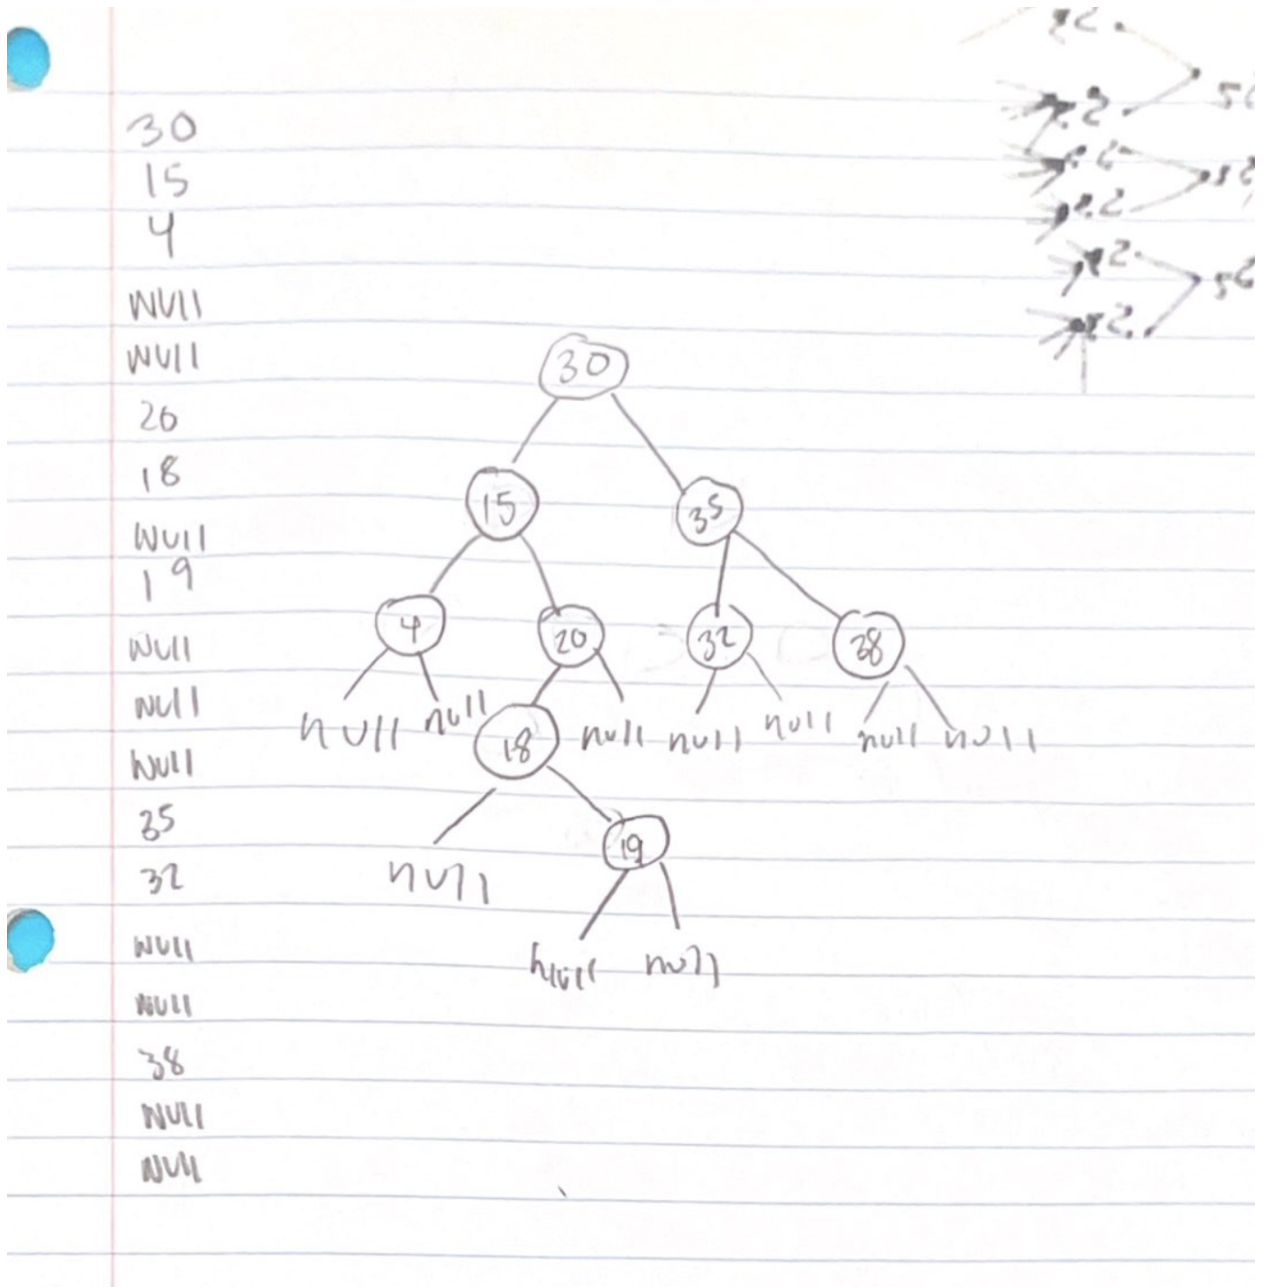 30
15
4
NULL
NULL
20
18
NULL
19
NULL
NULL
NULL
35
32
NULL
NULL
38
NULL
NULL
30
15 35
4 20 32 38
null null 18 null null null null null
null 19
null null